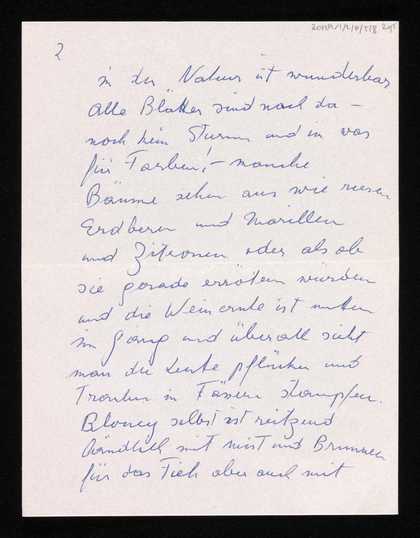 2
in der Natur ist wunderbar
Alle Blätter sind noch da –
noch kein Sturm und in was
für Farben! – manche
Bäume sehen aus wie riesen
Erdberen und Marillen
und Zitronen oder als ob
sie gerade erröten würden
und die Weinernte ist mitten
im Gang und überall sieht
man die Leute pflücken und
Trauben in Fässern stampfen.
Blonay selbst ist reitzend
ländlich mit mist und Brunnen
für das Vieh aber auch mit